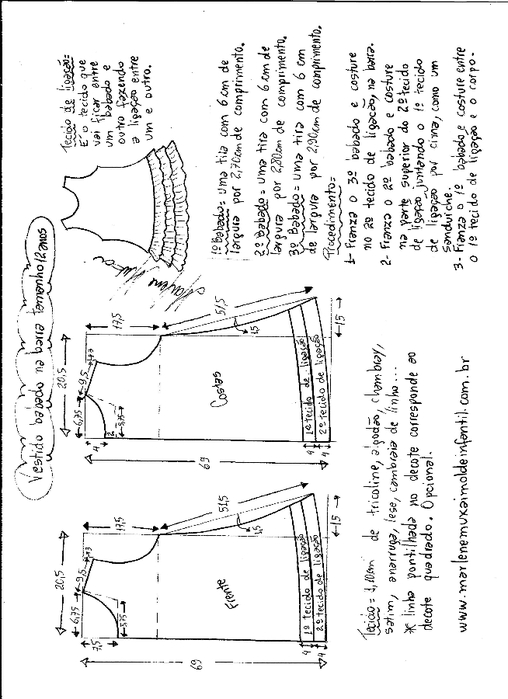 Vestido babado na barra tamanho 12 anos
Tecido de ligação=
É o tecido que
vai ficar entre
um babado e
outro fazendo
a ligação entre
um e outro.
1º Babado= uma tira com 6 cm de
largura por 2,70cm de comprimento.
2º Babado= uma tira com 6 cm de
largura por 2,80cm de comprimento.
3º Babado= uma tira com 6 cm
de largura por 2,90cm de comprimento.
Procedimento=
1- Franza o 3º babado e costure
no 2º tecido de ligação, na barra.
2- Franza o 2º babado e costure
na parte superior do 2º tecido
de ligação juntando o 1º tecido
de ligação por cima, como um
sanduiche.
3- Franza o 1º babado e costure entre
o 1º tecido de ligação e o corpo.
20,5
6,75
9,5
3
17,5
4
2
5,75
51,5
1,5
69
Costas
1º tecido de ligação
2º tecido de ligação
4
4
15
20,5
6,75
9,5
3
17,5
7,5
5,75
51,5
1,5
69
Frente
1º tecido de ligação
2º tecido de ligação
4
4
15
Tecido= 1,10cm de tricoline, algodão, chambray,
satim, anarruga, lese, cambraia de linho...
* linha pontilhada no decote corresponde ao
decote quadrado. Opcional.
www.marlenemukaimoldeinfantil.com.br